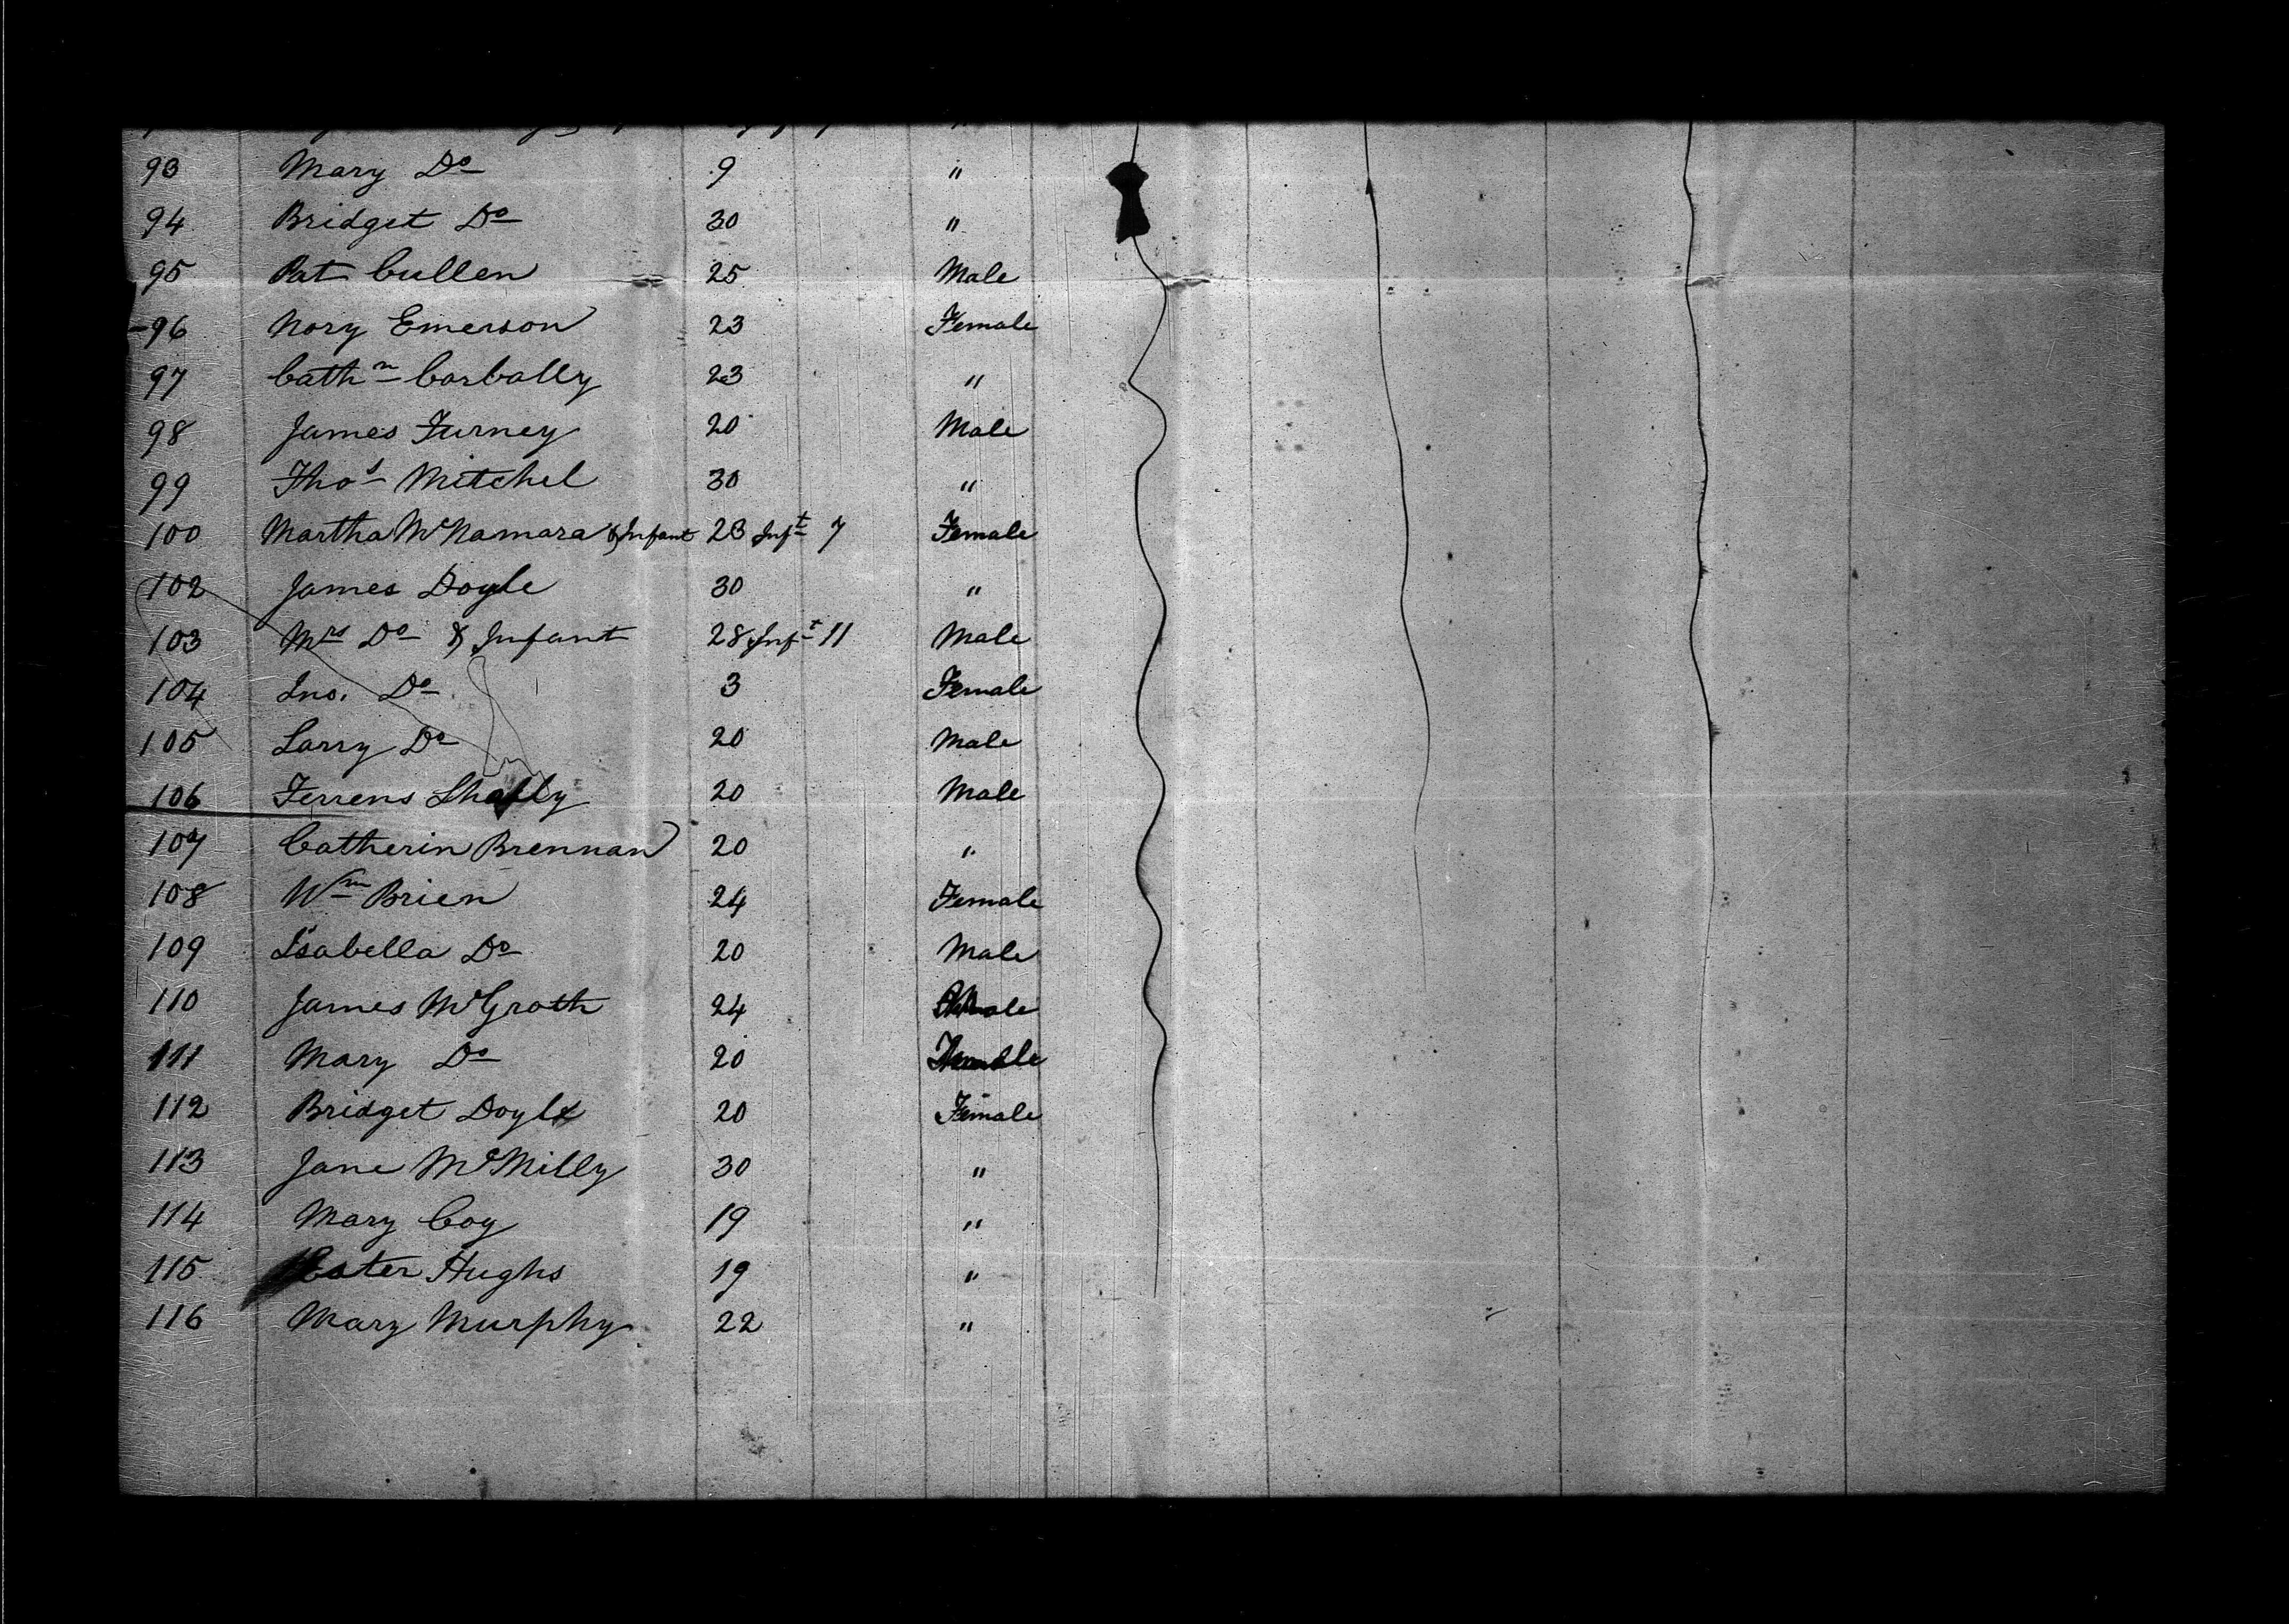 93 Mary Do 9 "
94 Bridget Do 30 "
95 Pat Cullen 25 Male
96 Nory Emerson 23 Female
97 Cathn Corbally 23 "
98 James Furney 20 Male
99 Thos Mitchel 30 "
100 Martha McNamara & Infant 23 Inft 7 Female
102 James Doyle 30 "
103 Mrs Do & Infant 28 Inft 11 Male
104 Jno. Do 3 Female
105 Larry Do 20 Male
106 Terrens 20 Male
107 Catherin Brennan 20 "
108 Wm Brien 24 Female
109 Isabella Do 20 Male
110 James McGrath 24 Male
111 Mary Do 20
112 Bridget Doyle 20 Female
113 Jane McNilly 30 "
114 Mary Coy 19 "
115 Ester Hughs 19 "
116 Mary Murphy 22 "